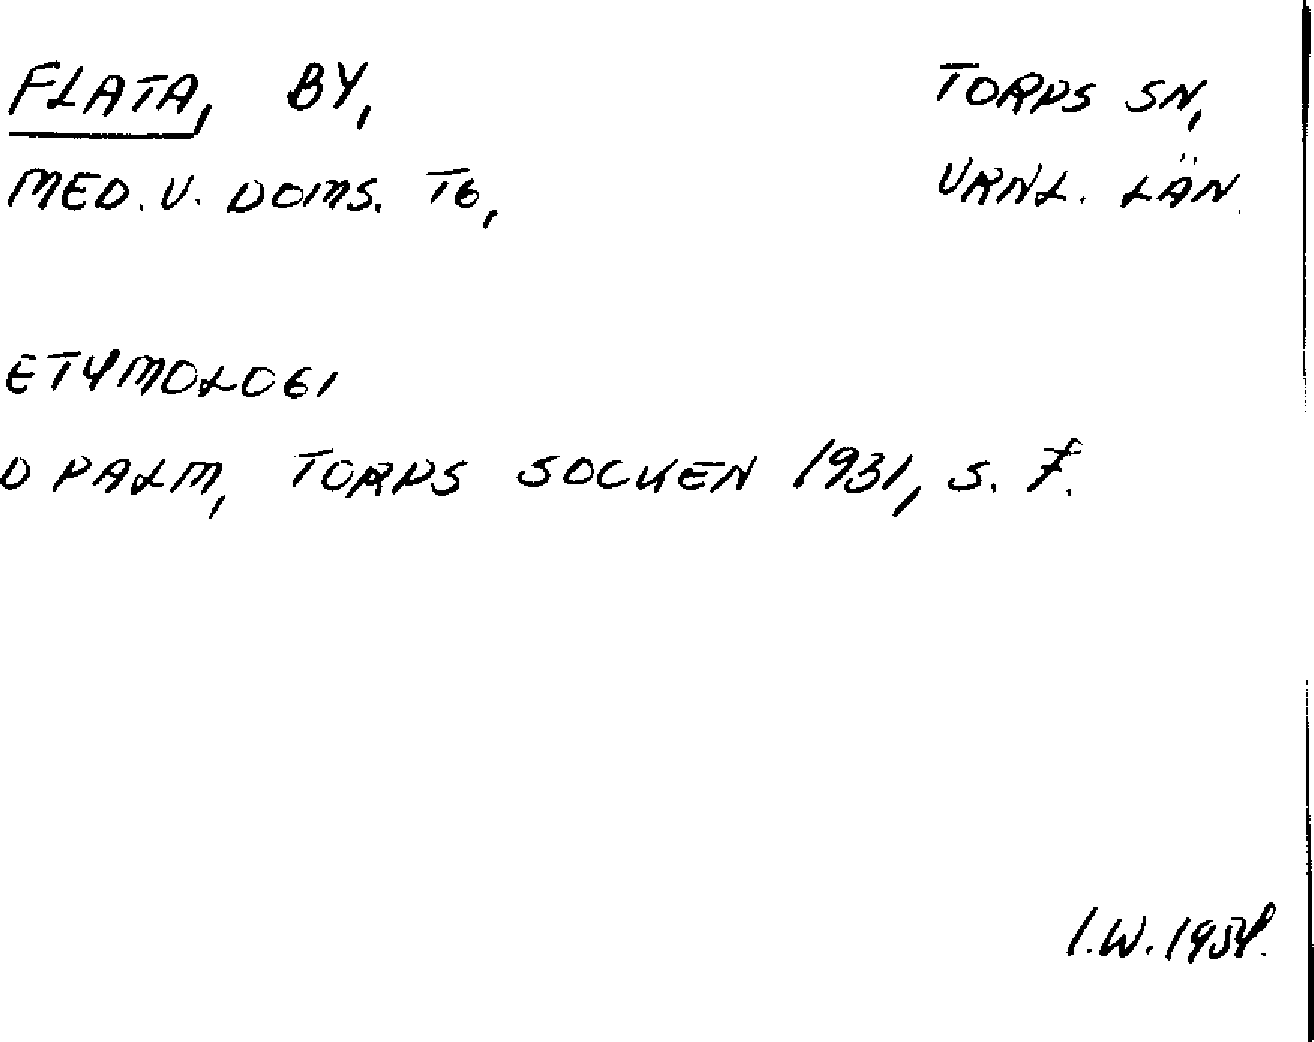 FLATA, BY, TORPS SN,
MED. V. DOMS. TG, VRNL. LÄN.
ETYMOLOGI
D PALM, TORPS SOCKEN 1931, S. 7.
I.W.